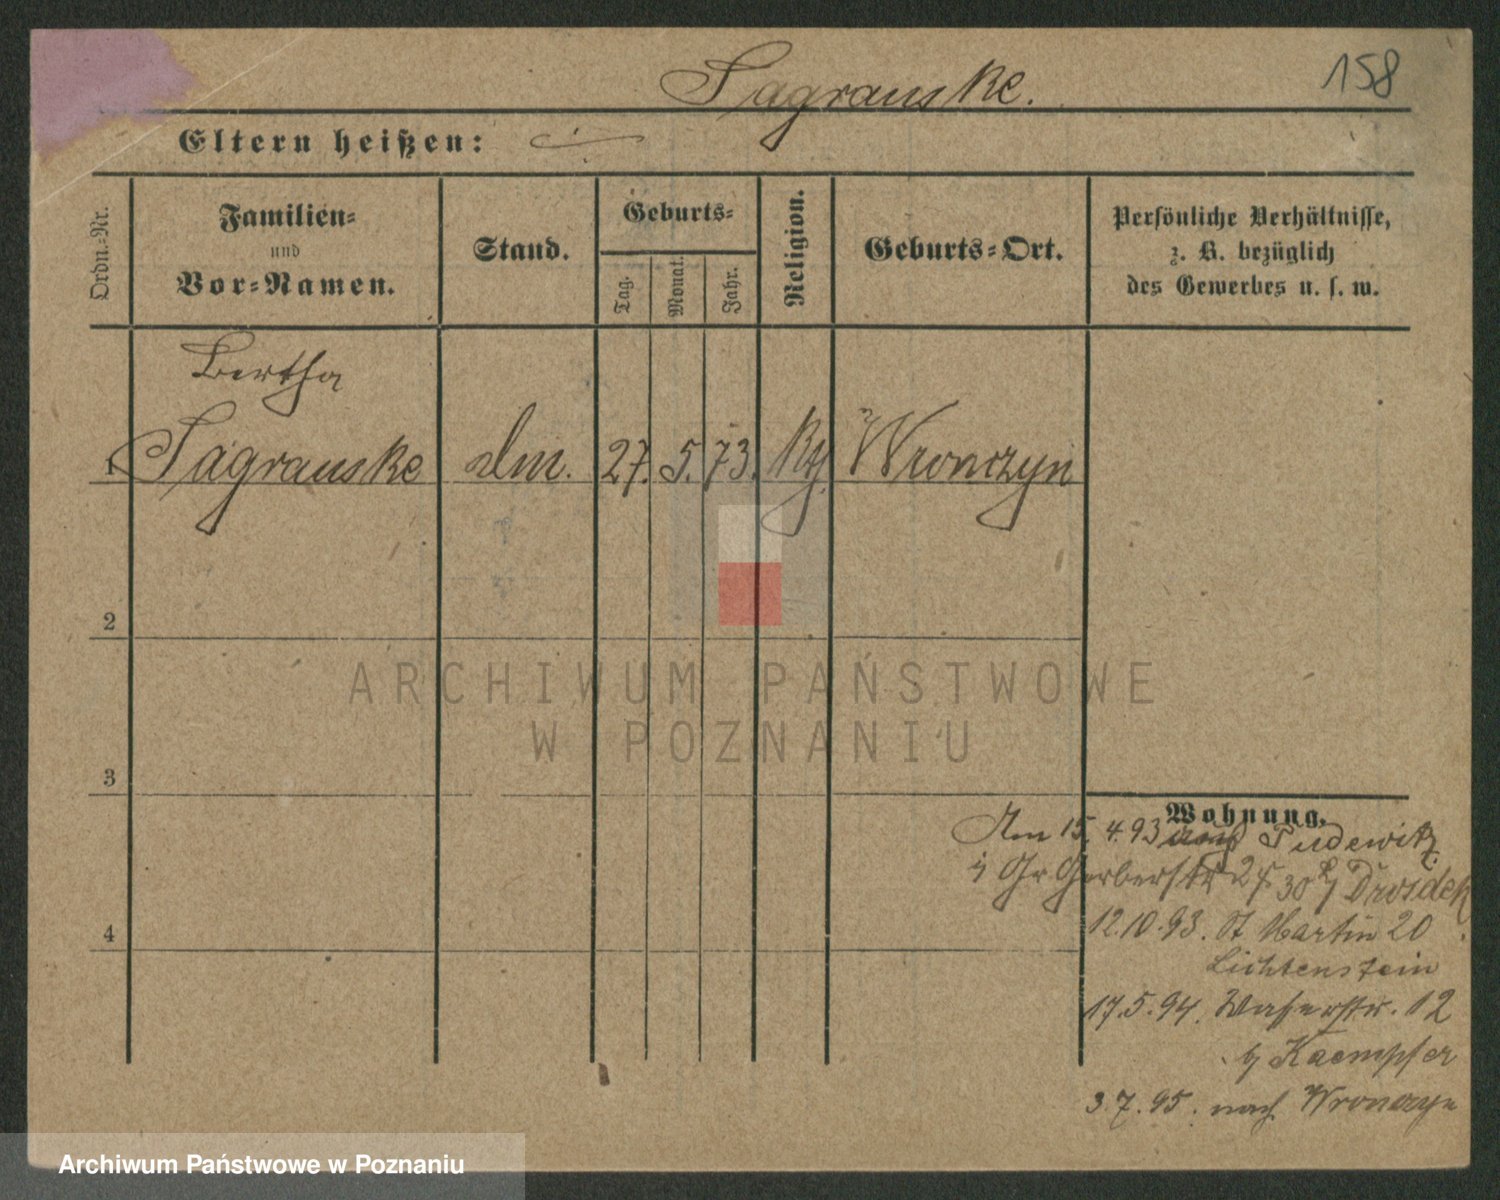 Sagrauske.
158
Eltern heißen:
Ordn.-Nr.
Familien-
und
Vor-Namen.
Stand.
Geburts-
Tag.
Monat.
Jahr.
Religion.
Geburts-Ort.
Persönliche Verhältnisse,
z. B. bezüglich
des Gewerbes u. s. w.
Bertha
1 Sagrauske 27. 5. 73. Wronczyn
2
3
4
Wohnung.
Am 15. 4. 93 Pudewitz
Gr Gerberstr Drosdek
12.10.93. St Martin 20
Lichtenstein
17.5.94. Wasserstr. 12
Kaempfer
3.7.95. nach Wronczyn
ARCHIWUM PAŃSTWOWE
W POZNANIU
Archiwum Państwowe w Poznaniu